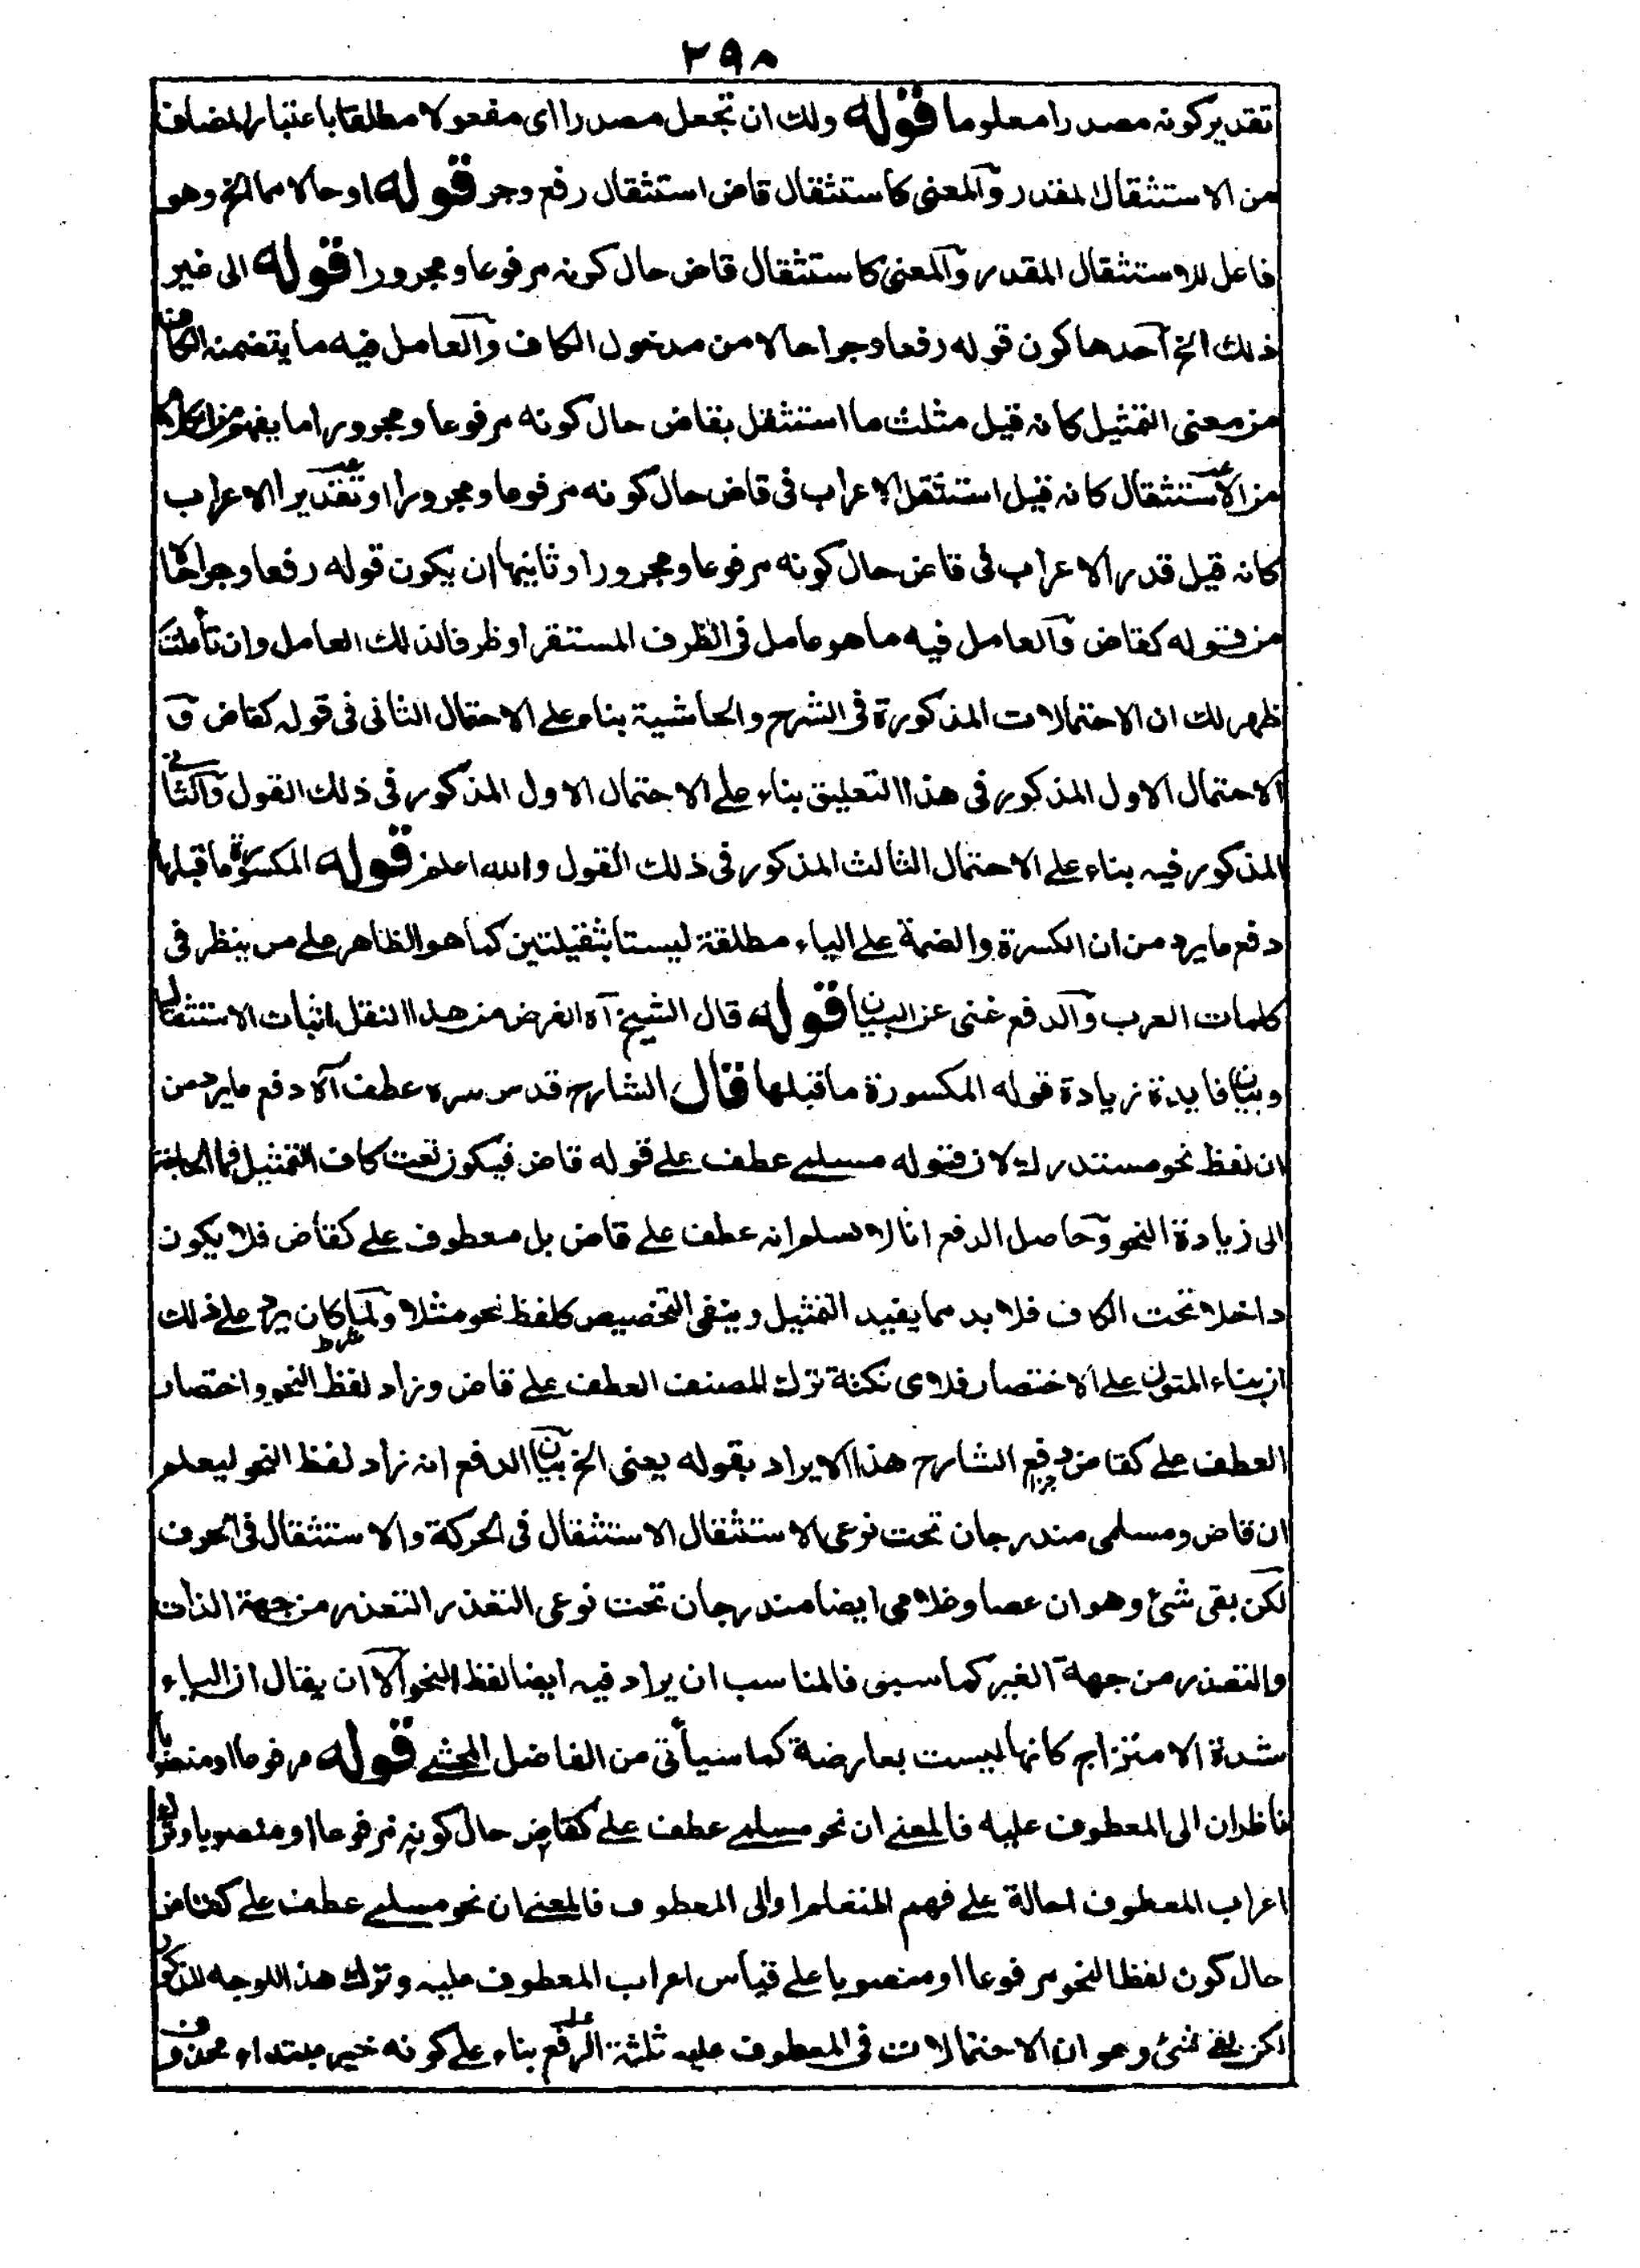 ۲۹۸
تقدير كونه مصدرا معلوما قوله ولك ان تجعل مصدرا اى مفعولا مطلقا باعتبار المضاف
من الاستثقال المقدر والمعنى كاستثقال قاض استثقال رفع وجر قوله او حالا مما الخ وهو
فاعل للاستثقال المقدر والمعنى كاستثقال قاض حال كونه مرفوعا ومجرورا قوله الى غير
ذلك الخ احدها كون قوله رفعا وجرا حالا من مدخول الكاف والعامل فيه ما يتضمنه الكاف
من معنى التمثيل كانه قيل مثلت ما استثقل بقاض حال كونه مرفوعا ومجرورا ما يفهم من الكلام
من الاستثقال كانه قيل استثقل الاعراب فى قاض حال كونه مرفوعا ومجرورا او تقدير الاعراب
كانه قيل قدر الاعراب فى قاض حال كونه مرفوعا ومجرورا وثانيها ان يكون قوله رفعا وجرا حالا
من قوله كقاض والعامل فيه ما هو عامل فى الظرف المستقر او ظرفا لذلك العامل وان تأملت
ظهر لك ان الاحتمالات المذكورة فى الشرح والحاشية بناء على الاحتمال الثانى فى قوله كقاض و
الاحتمال الاول المذكور فى هذا التعليق بناء على الاحتمال الاول المذكور فى ذلك القول والثانى
المذكور فيه بناء على الاحتمال الثالث المذكور فى ذلك القول والله اعلم قوله المكسورة ما قبلها
دفع ما يرد من ان الكسرة والضمة على الياء مطلقة ليستا بثقيلتين كما هو الظاهر على من ينظر فى
كلمات العرب والدفع غنى عن البيان قوله قال الشيخ آه الغرض من هذا النقل اثبات الاستثقال
وبيان فايدة زيادة قوله المكسورة ما قبلها قال الشارح قدس سره عطف آه دفع ما يرد من
ان لفظ نحو مستدرك لان قوله مسلمى عطف على قوله قاض فيكون تحت كاف التمثيل فما الحاجة
الى زيادة النحو وحاصل الدفع انا لا نسلم انه عطف على قاض بل معطوف على كقاض فلا يكون
داخلا تحت الكاف فلا بد مما يفيد التمثيل وينفى التخصيص كلفظ نحو مثلا ولما كان يرد على ذلك
ان بناء المتون على الاختصار فلاى نكتة ترك المصنف العطف على قاض وزاد لفظ النحو واختصار
العطف على كقاض دفع الشارح هذا الايراد بقوله يعنى الخ بيان الدفع انه زاد لفظ النحو ليعلم
ان قاض ومسلمى مندرجان تحت نوعى الاستثقال الاستثقال فى الحركة والاستثقال فى الحرف
لكن بقى شئ وهو ان عصا وغلامى ايضا مندرجان تحت نوعى التعذر التعذر من جهة الذات
والتعذر من جهة الغير كما سبق فالمناسب ان يراد فيه ايضا لفظ النحو الا ان يقال ان الياء
شدة الامتزاج كانها ليست بعارضة كما سيأتى من الفاضل المحشى قوله مرفوعا او منصوبا
ناظران الى المعطوف عليه فالمعنى ان نحو مسلمى عطف على كقاض حال كونه مرفوعا او منصوبا وترك
اعراب المعطوف احالة على فهم المتعلم او الى المعطوف فالمعنى ان نحو مسلمى عطف على كقاض
حال كون لفظ النحو مرفوعا او منصوبا على قياس اعراب المعطوف عليه وترك هذا لوجه المذكور
لكن بقى شئ وهو ان الاحتمالات فى المعطوف عليه ثلثة الرفع بناء على كونه خبر مبتداء محذوف